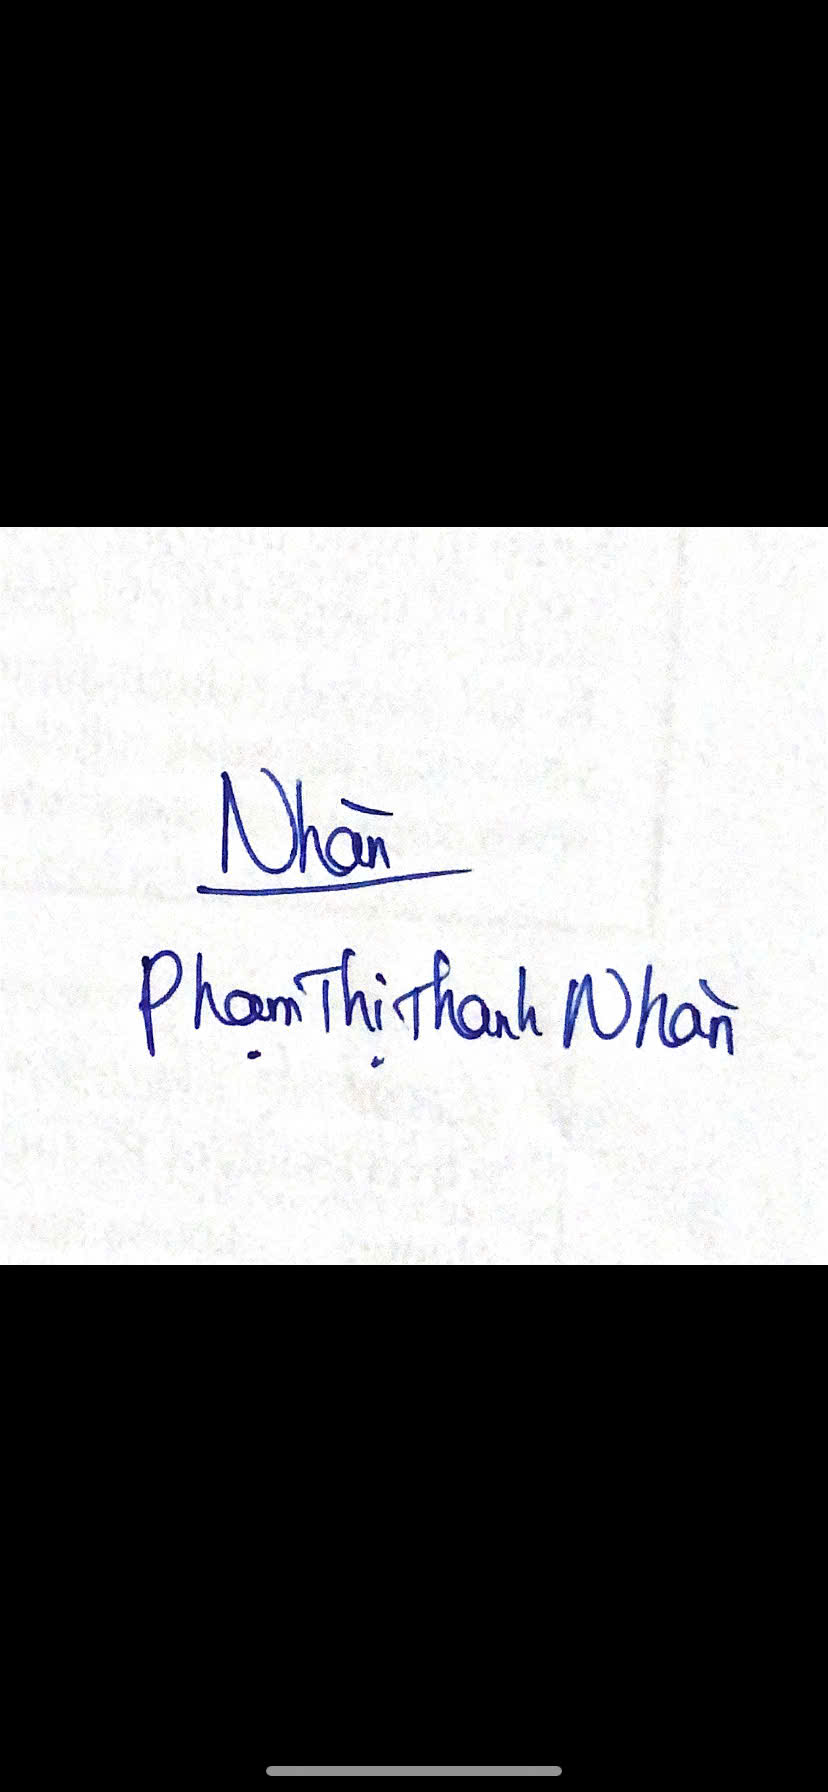 Nhàn
Phạm Thị Thanh Nhàn